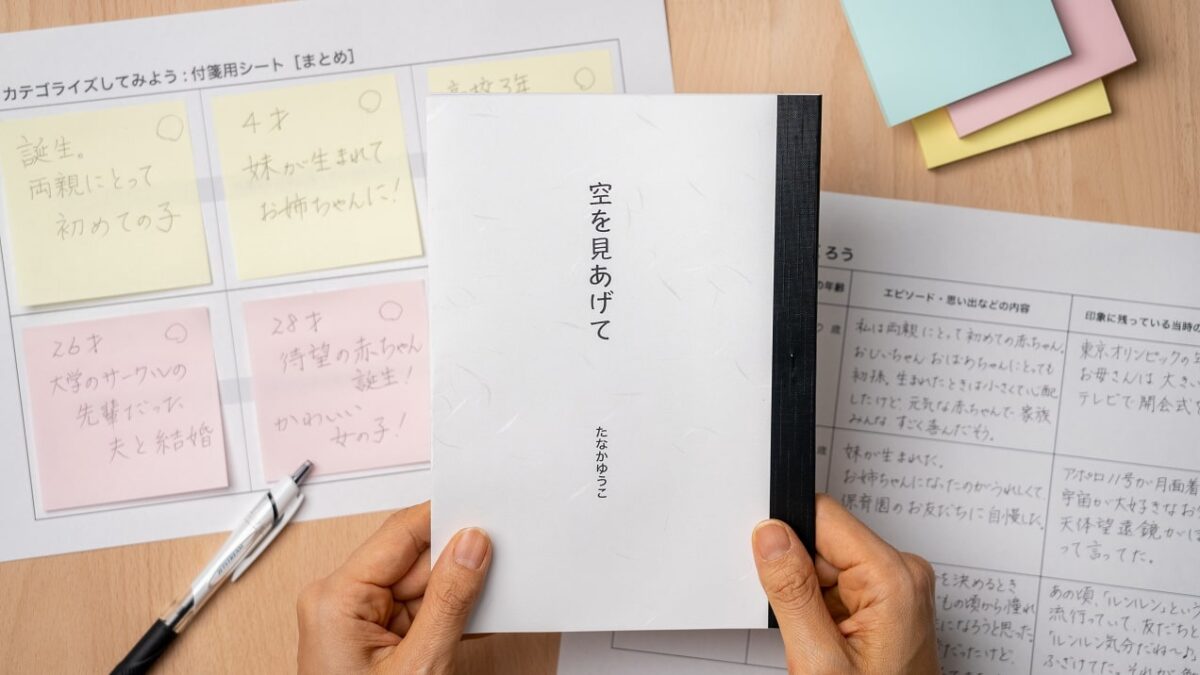 カテゴライズしてみよう：付箋用シート［まとめ］
誕生。
両親にとって
初めての子
4才
妹が生まれて
お姉ちゃんに！
高校3年
26才
大学のサークルの
先輩だった
夫と結婚
28才
待望の赤ちゃん
誕生！
かわいい
女の子！
空を見あげて
たなかゆうこ
JETSTREAM
ろう
の年齢
エピソード・思い出などの内容
印象に残っている当時の
歳
私は両親にとって初めての赤ちゃん。
おじいちゃん おばあちゃんにとっても
初孫。生まれたときは小さくて心配
したけど、元気な赤ちゃんで、家族
みんな すごく喜んだそう。
東京オリンピックの
お母さんは 大き
テレビで 開会式
歳
妹が生まれた。
お姉ちゃんになったのがうれしくて
保育園のお友だちに自慢した。
アポロ11号が月面着
宇宙が大好きなお
天体望遠鏡が
って言ってた。
を決めるとき
もの頃から憧れ
になろうと思った
だったけど、
あの頃、「ルンルン」という
流行っていて、友だちと
「ルンルン気分だね〜♪」
ふざけてた。それが